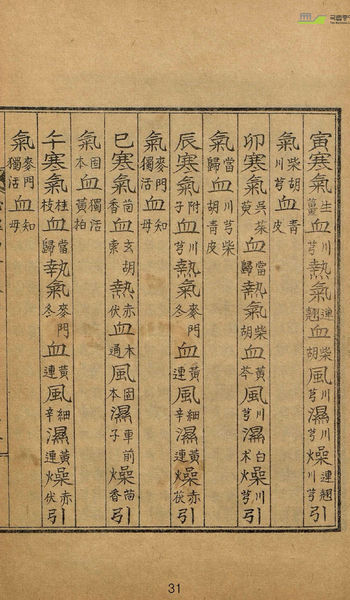 寅寒氣生薑血川芎熱氣連翹血柴胡風川芎濕川芎燥連翹川芎引
氣柴胡川芎血青皮
卯寒氣吳茱萸血當歸熱氣柴胡血黃芩風川芎濕白朮燥川芎引
氣當歸血川芎柴胡青皮
辰寒氣附子血川芎熱氣麥門冬血黃連風細辛濕黃連燥赤茯引
氣麥門獨活血知母
巳寒氣茴香血玄胡索熱赤伏血木通風固本濕車前子燥茴香引
氣固本血獨活黃柏
午寒氣桂枝血當歸熱氣麥門冬血黃連風細辛濕黃連燥赤伏引
氣麥門獨活血知母
31